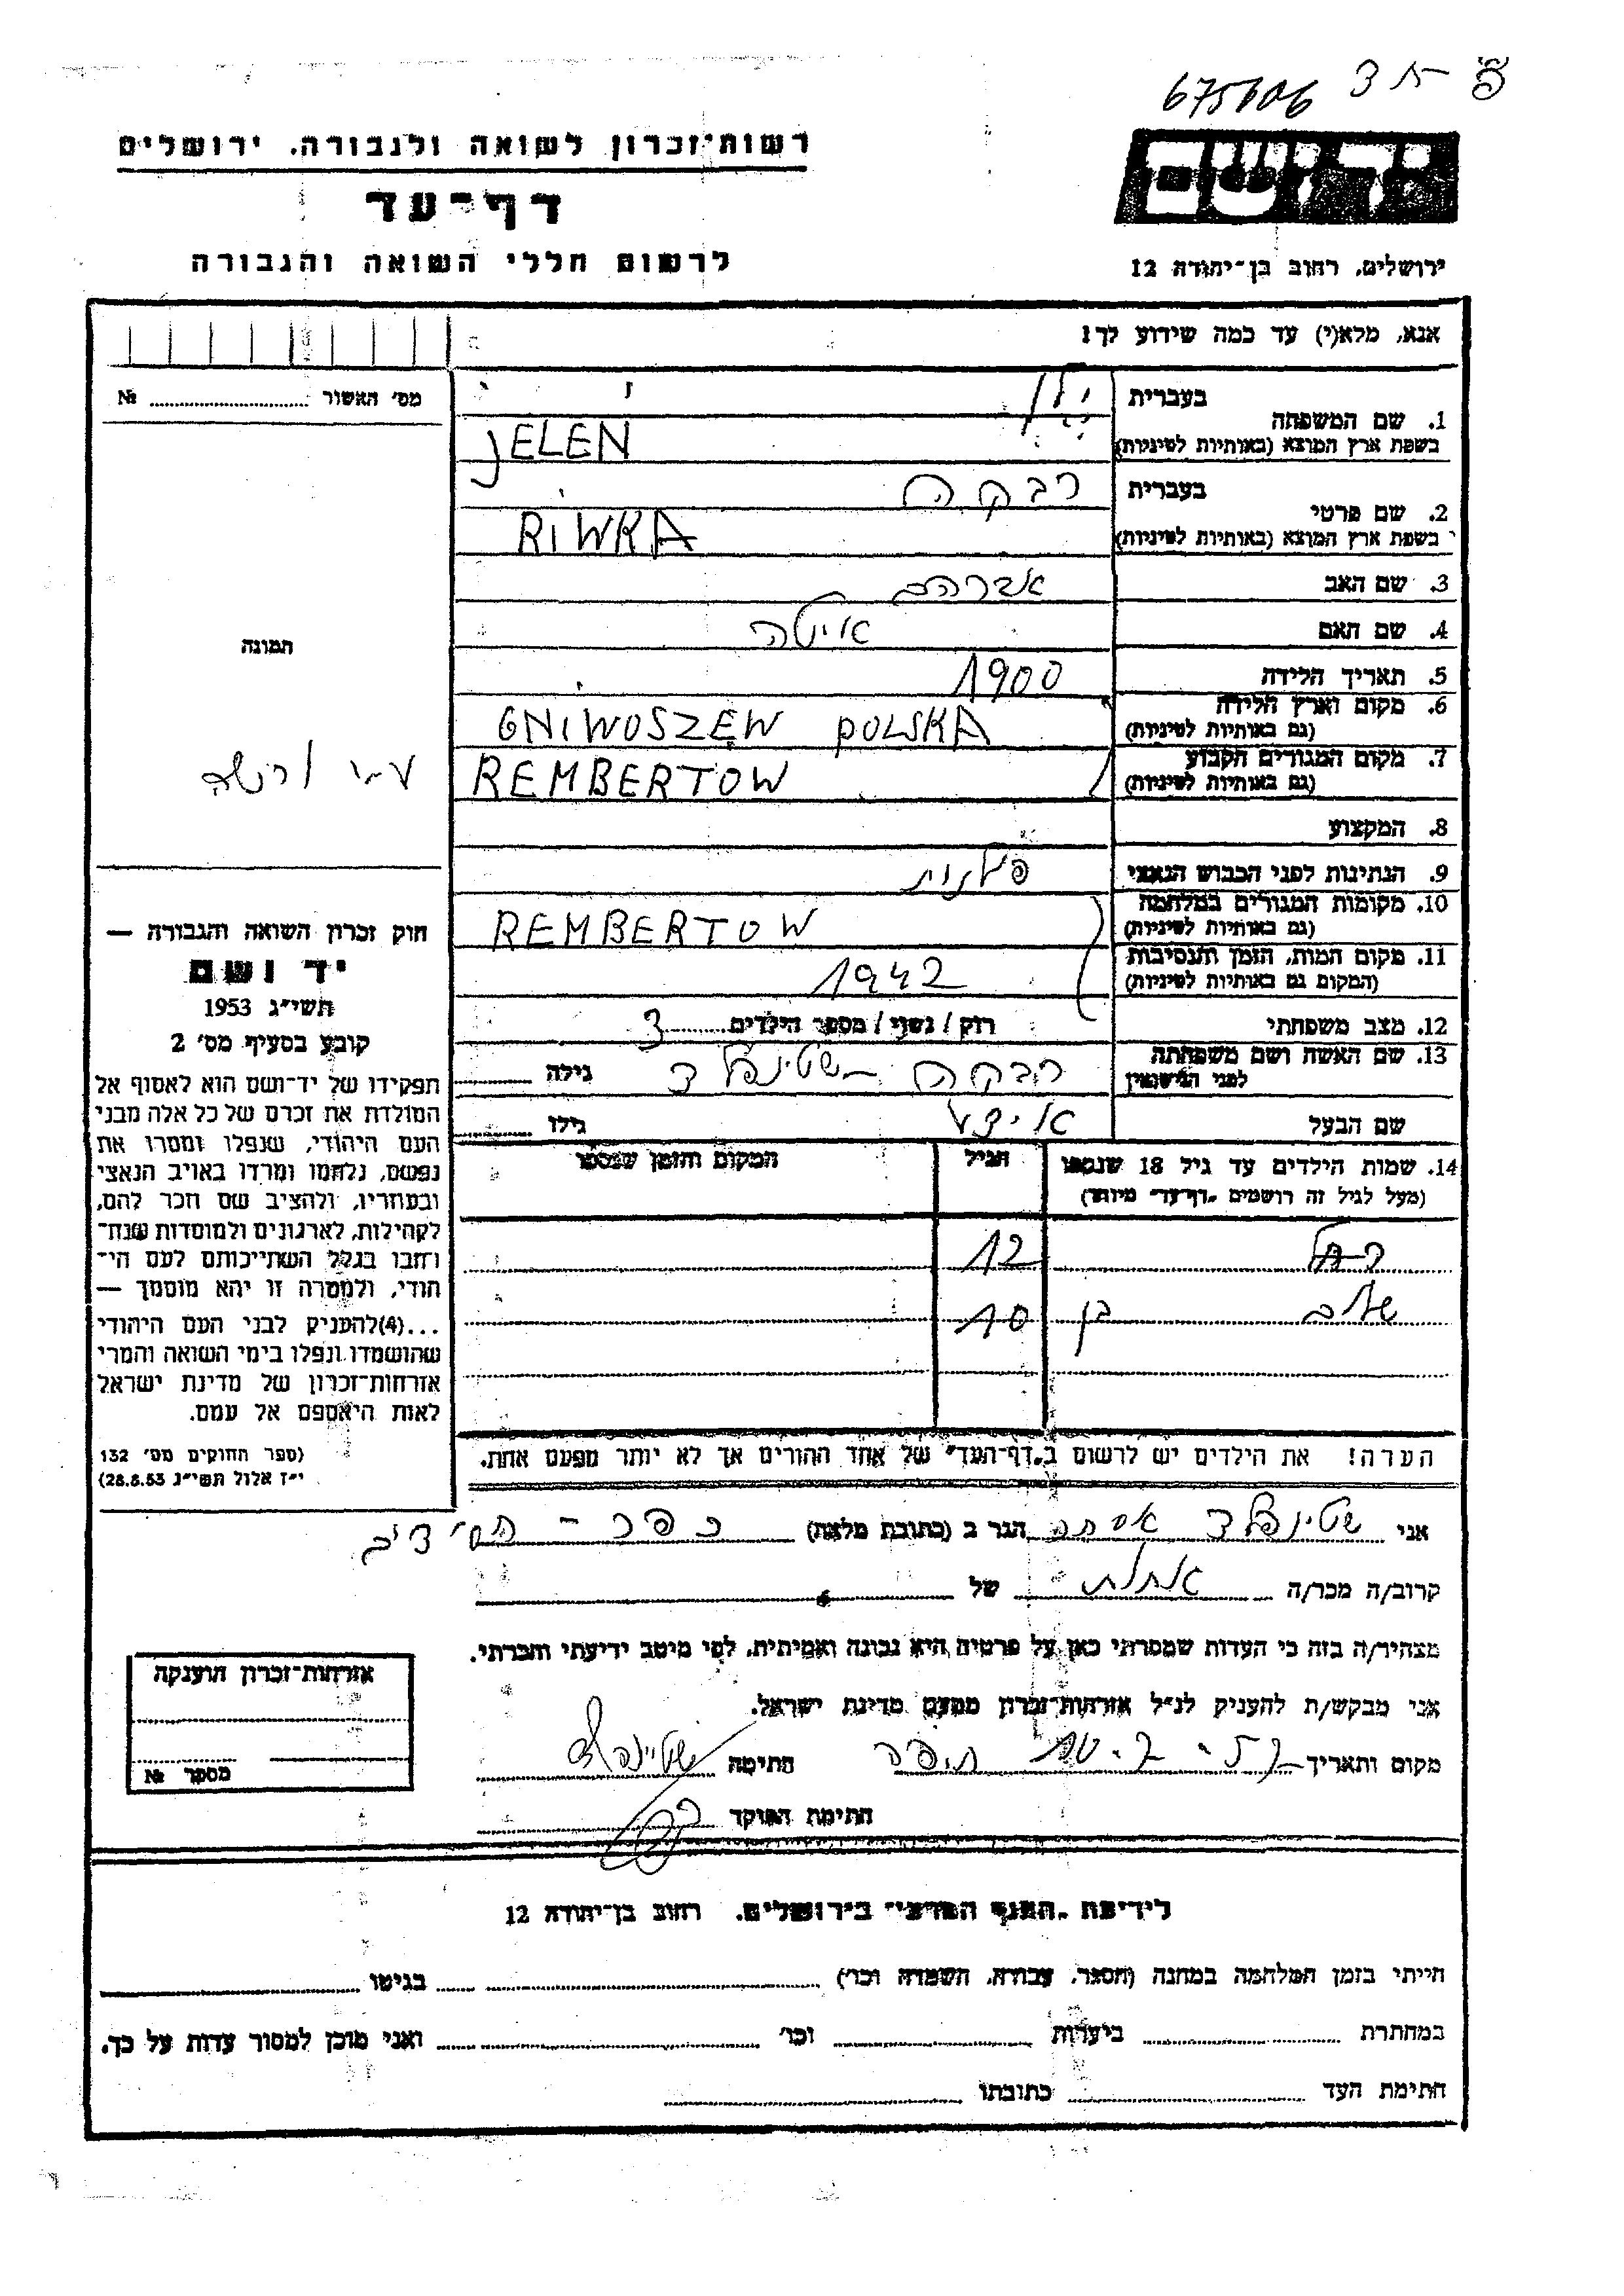 675606
רשות־זכרון לשואה ולגבורה, ירושלים
דף־עד
לרשום חללי השואה והגבורה
יד ושם
ירושלים, רחוב בן־יהודה 12
אנא, מלא(י) עד כמה שידוע לך!
מס' האשור ........ №
תמונה
1. שם המשפחה
בעברית ילן
בשפת ארץ המוצא (באותיות לטיניות) JELEN
2. שם פרטי
בעברית רבקה
בשפת ארץ המוצא (באותיות לטיניות) RIWKA
3. שם האב אברהם
4. שם האם איטה
5. תאריך הלידה 1900
6. מקום וארץ הלידה (גם באותיות לטיניות) GNIWOSZEW POLSKA
7. מקום המגורים הקבוע (גם באותיות לטיניות) REMBERTOW
8. המקצוע
9. הנתינות לפני הכבוש הנאצי פולנית
10. מקומות המגורים במלחמה (גם באותיות לטיניות) REMBERTOW
11. מקום המות, הזמן והנסיבות (המקום גם באותיות לטיניות) 1942
12. מצב משפחתי רוק / נשוי / מספר הילדים 3
13. שם האשה ושם משפחתה לפני הנישואין רבקה שטינפלד גילה
שם הבעל גילו
14. שמות הילדים עד גיל 18 שנספו הגיל המקום והזמן שנספו
(מעל לגיל זה רושמים "דף־עד" מיוחד)
רחל 12
בן 10
הערה! את הילדים יש לרשום ב"דף־העד" של אחד ההורים אך לא יותר מפעם אחת.
חוק זכרון השואה והגבורה —
יד ושם
תשי״ג 1953
קובע בסעיף מס' 2
תפקידו של יד־ושם הוא לאסוף אל
המולדת את זכרם של כל אלה מבני
העם היהודי, שנפלו ומסרו את
נפשם, נלחמו ומרדו באויב הנאצי
ובעוזריו, ולהציב שם וזכר להם,
לקהילות, לארגונים ולמוסדות שנח־
רבו בגלל השתייכותם לעם הי־
הודי, ולמטרה זו יהא מוסמך —
...(4)להעניק לבני העם היהודי
שהושמדו ונפלו בימי השואה והמרי
אזרחות־זכרון של מדינת ישראל
לאות היאספם אל עמם.
(ספר החוקים מס' 132
י״ז אלול תשי״ג 28.8.53)
אני שטינפלד אסתר הגר ב (כתובת מלאה) כפר - חסידים
קרוב/ה מכר/ה של
מצהיר/ה בזה כי העדות שמסרתי כאן על פרטיה היא נכונה ואמיתית, לפי מיטב ידיעתי והכרתי.
אני מבקש/ת להעניק לנ״ל אזרחות־זכרון מטעם מדינת ישראל.
מקום ותאריך חיפה חתימה
חתימת הפוקד
אזרחות־זכרון הוענקה
מספר №
לידיעת "הגנזך המרכזי" בירושלים, רחוב בן־יהודה 12
הייתי בזמן המלחמה במחנה (הסגר, עבודה, השמדה וכו') בגיטו
במחתרת ביערות וכו' ואני מוכן למסור עדות על כך.
חתימת העד כתובתו